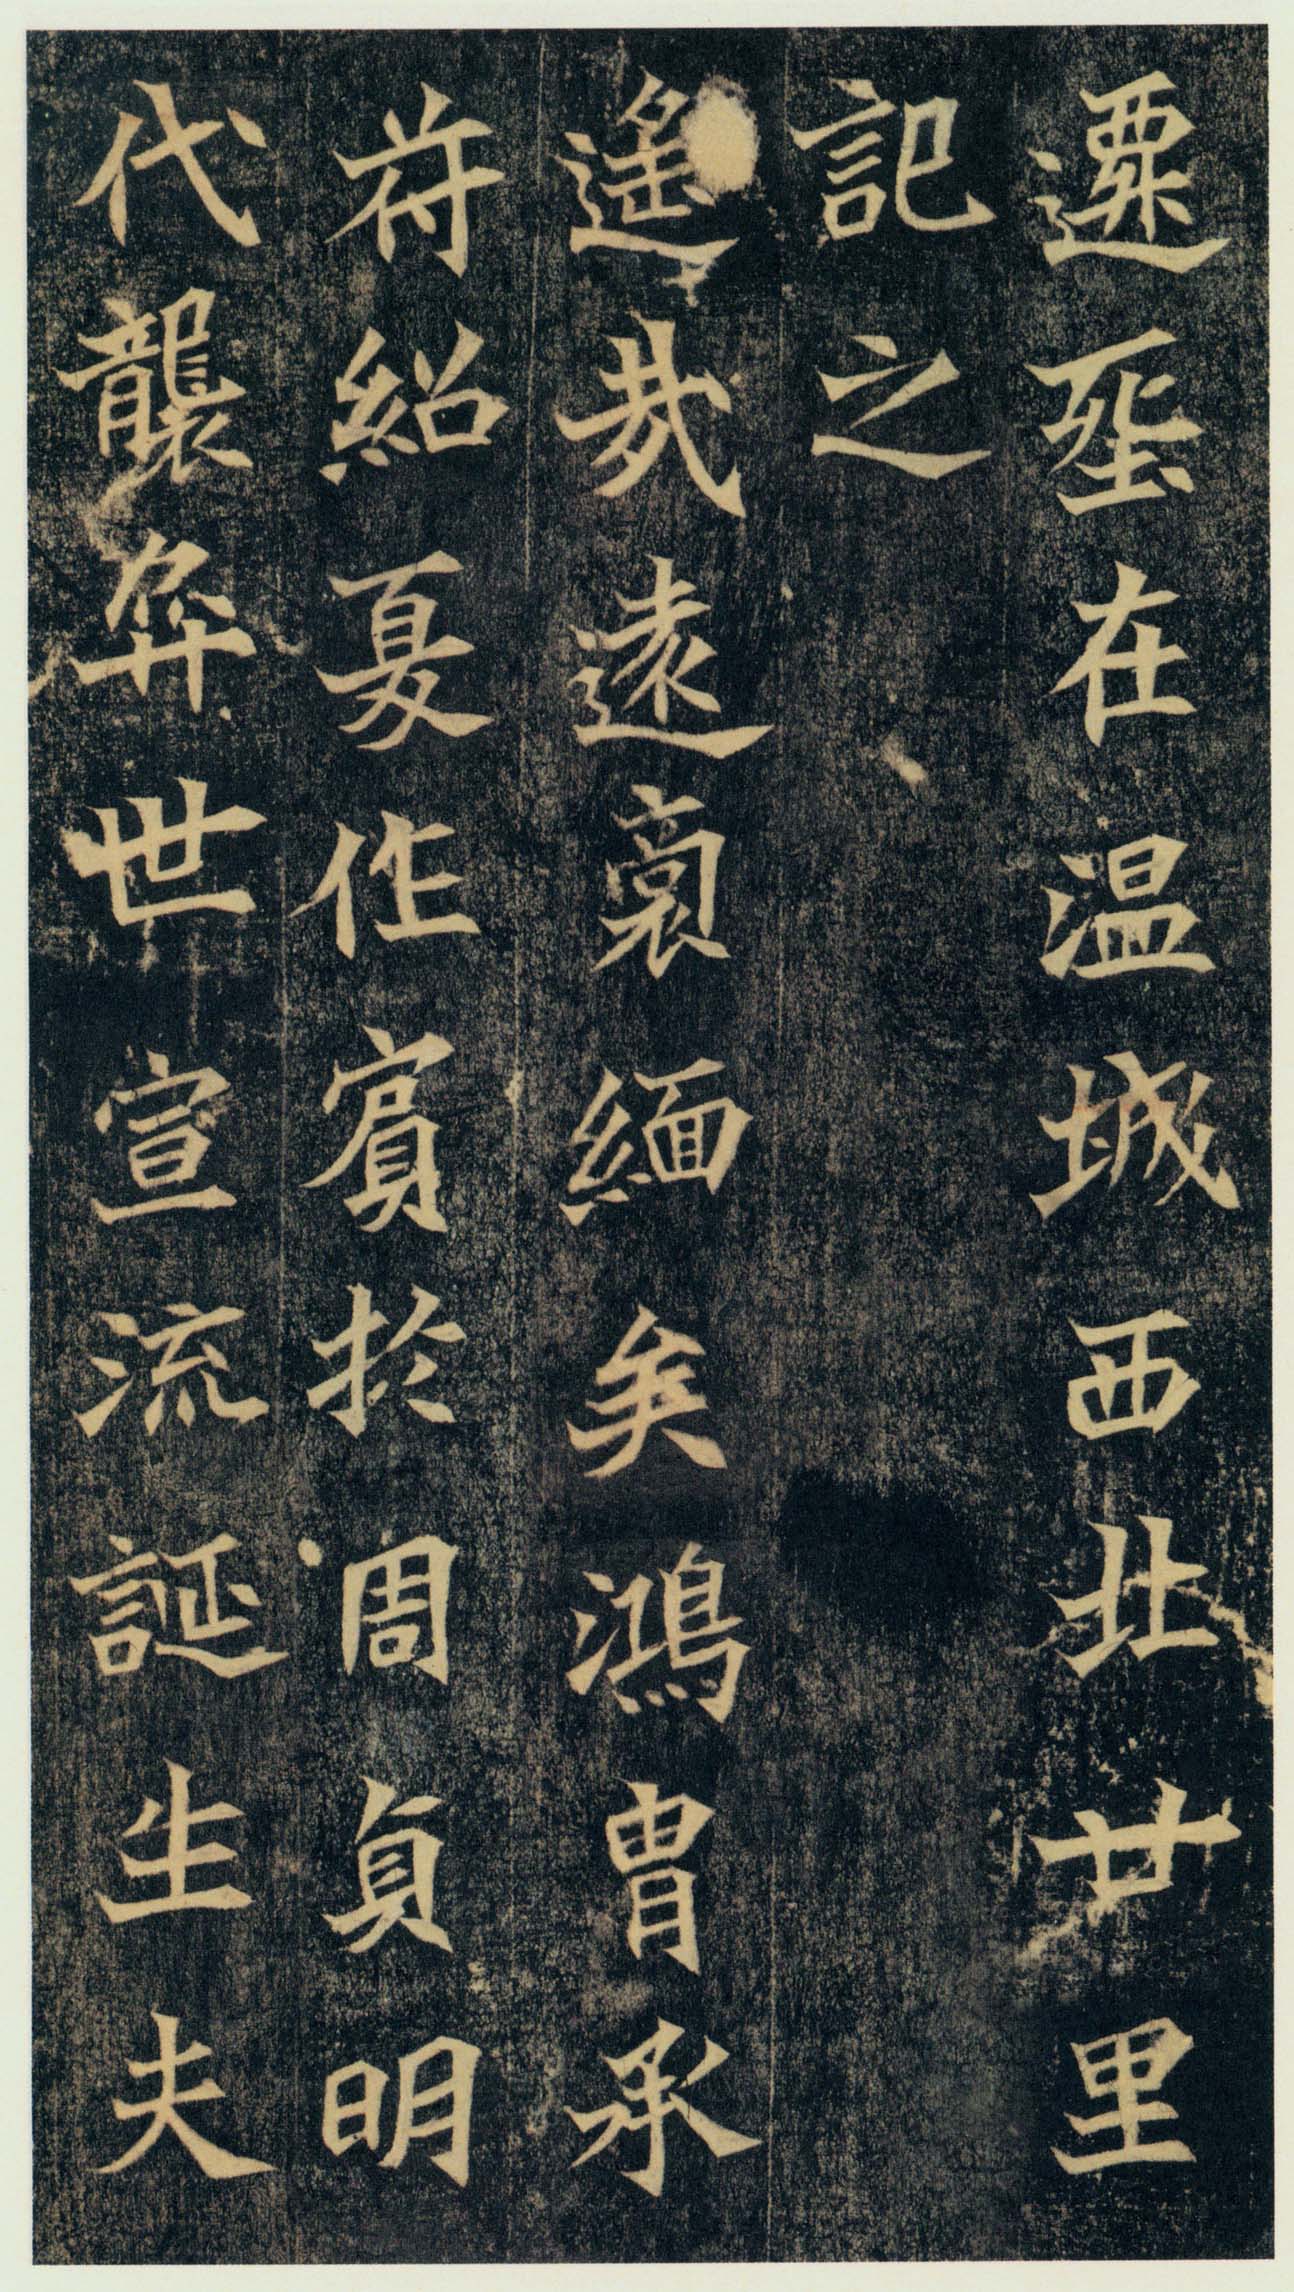 遷塟在温城西北廿里
記之
遙哉遠裔緬矣鴻胄承
符紹夏作賓於周貞明
代襲弈世宣流誕生夫